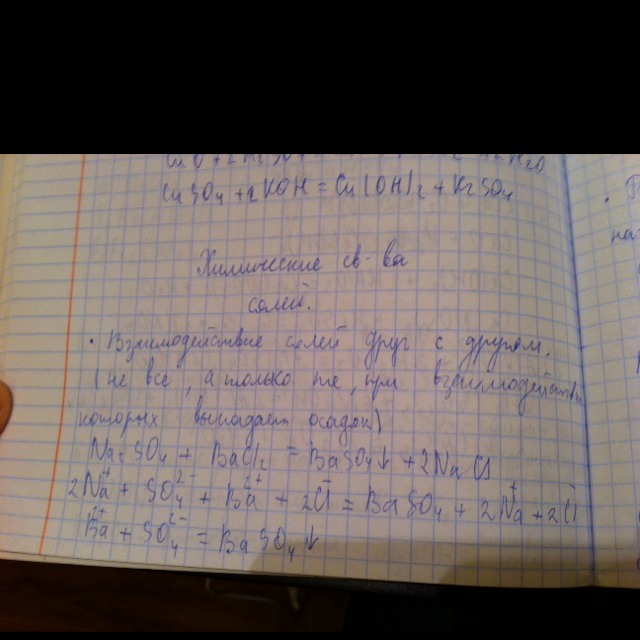 CuSO₄+2KOH=Cu(OH)₂+K₂SO₄
Химические св-ва
солей.
• Взаимодействие солей друг с другом.
(не все, а только те, при взаимодейств
которых выпадает осадок)
Na₂SO₄ + BaCl₂ = BaSO₄↓ + 2NaCl
2Na⁺ + SO₄²⁻ + Ba²⁺ + 2Cl⁻ = BaSO₄ + 2Na⁺ + 2Cl⁻
Ba²⁺ + SO₄²⁻ = BaSO₄↓